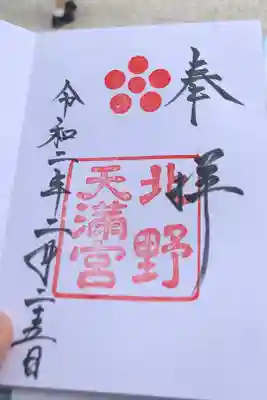 奉拝
北野
天満宮
令和二年二月二五日